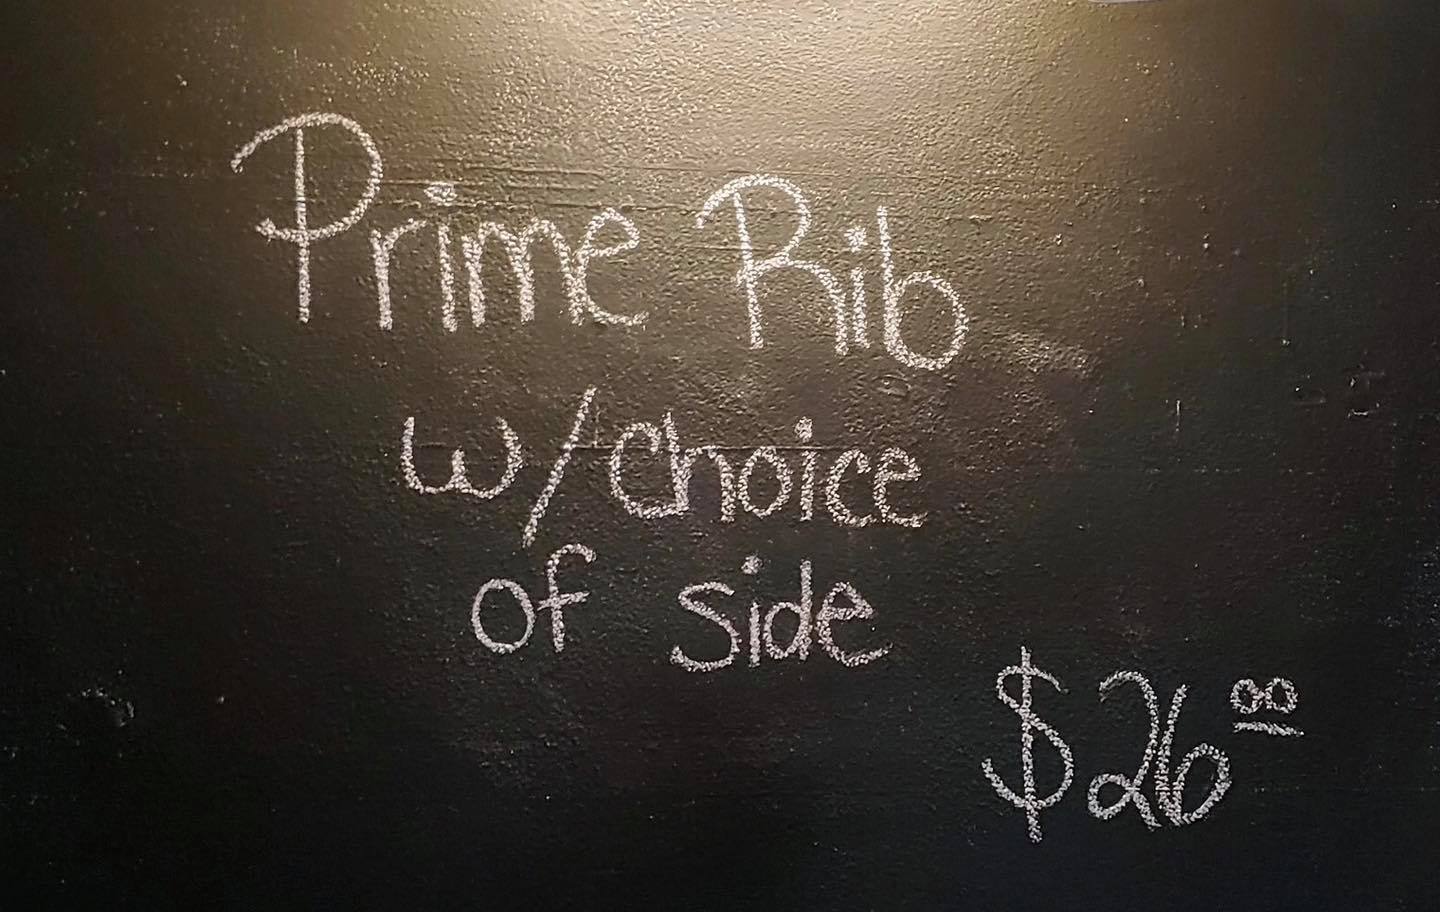 Prime Rib
w/choice
of side
$26.00